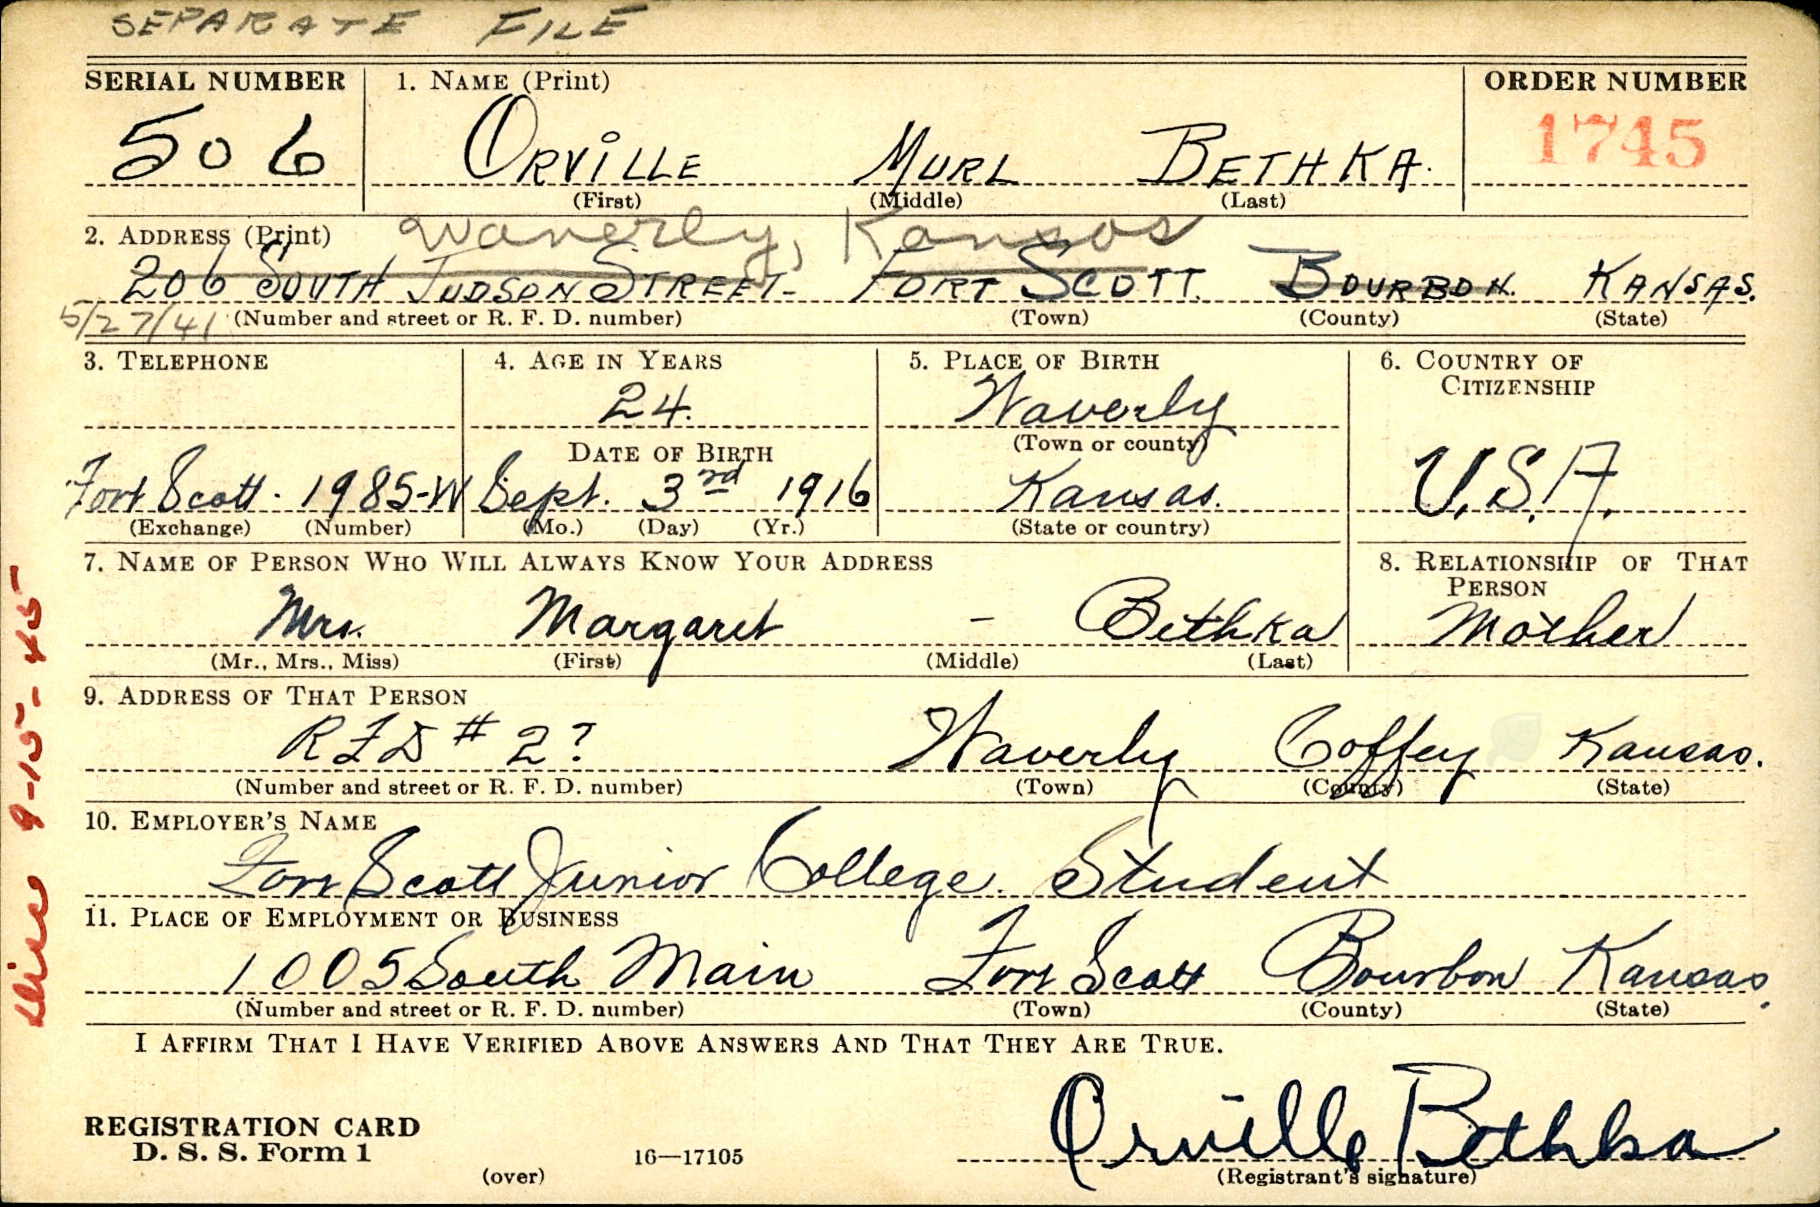 SEPARATE FILE
SERIAL NUMBER 1. NAME (Print) ORDER NUMBER
506 ORVILLE MURL BETHKA. 1745
(First) (Middle) (Last)
2. ADDRESS (Print) Waverly, Kansas
206 SOUTH JUDSON STREET- FORT SCOTT. BOURBON. KANSAS.
5/27/41 (Number and street or R. F. D. number) (Town) (County) (State)
3. TELEPHONE 4. AGE IN YEARS 5. PLACE OF BIRTH 6. COUNTRY OF
CITIZENSHIP
24. Waverly
DATE OF BIRTH (Town or county)
Fort Scott. 1985-W Sept. 3rd 1916 Kansas. U.S.A.
(Exchange) (Number) (Mo.) (Day) (Yr.) (State or country)
7. NAME OF PERSON WHO WILL ALWAYS KNOW YOUR ADDRESS 8. RELATIONSHIP OF THAT
PERSON
Mrs. Margaret - Bethka Mother
(Mr., Mrs., Miss) (First) (Middle) (Last)
9. ADDRESS OF THAT PERSON
RFD # 2? Waverly Coffey Kansas.
(Number and street or R. F. D. number) (Town) (County) (State)
10. EMPLOYER'S NAME
Fort Scott Junior College. Student
11. PLACE OF EMPLOYMENT OR BUSINESS
1005 South Main Fort Scott Bourbon Kansas.
(Number and street or R. F. D. number) (Town) (County) (State)
I AFFIRM THAT I HAVE VERIFIED ABOVE ANSWERS AND THAT THEY ARE TRUE.
Orville Bethka
REGISTRATION CARD
D. S. S. Form 1
(over) 16—17105 (Registrant's signature)
9-15-45